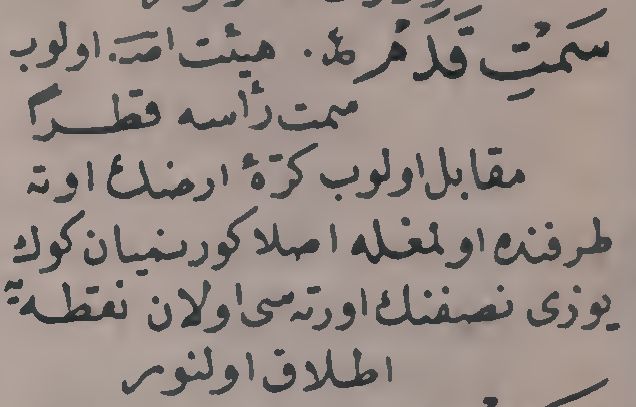 سَمْتِ قَدَمْ هیئت اولوب
سمت رأسه قطر
مقابل اولوب كرّۀ ارضك اوته
طرفنده اولمغله اصلا كورنمیان كوك
یوزی نصفنك اورته سی اولان نقطه یه
اطلاق اولنور